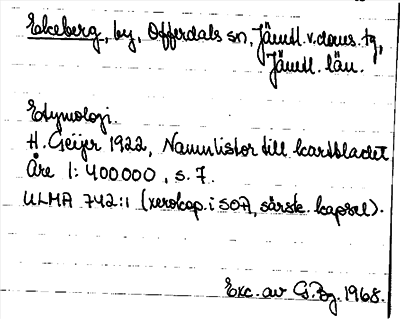 Ekeberg, by, Offerdals sn, Jämtl. v. doms. tg,
Jämtl. län.
Etymologi.
H. Geijer 1922, Namnlistor till kartbladet
Åre 1:400000, s. 7.
ULMA 742:1 (xerokop. i SOA, särsk. kapsel).
Exc. av G. Bg. 1968.